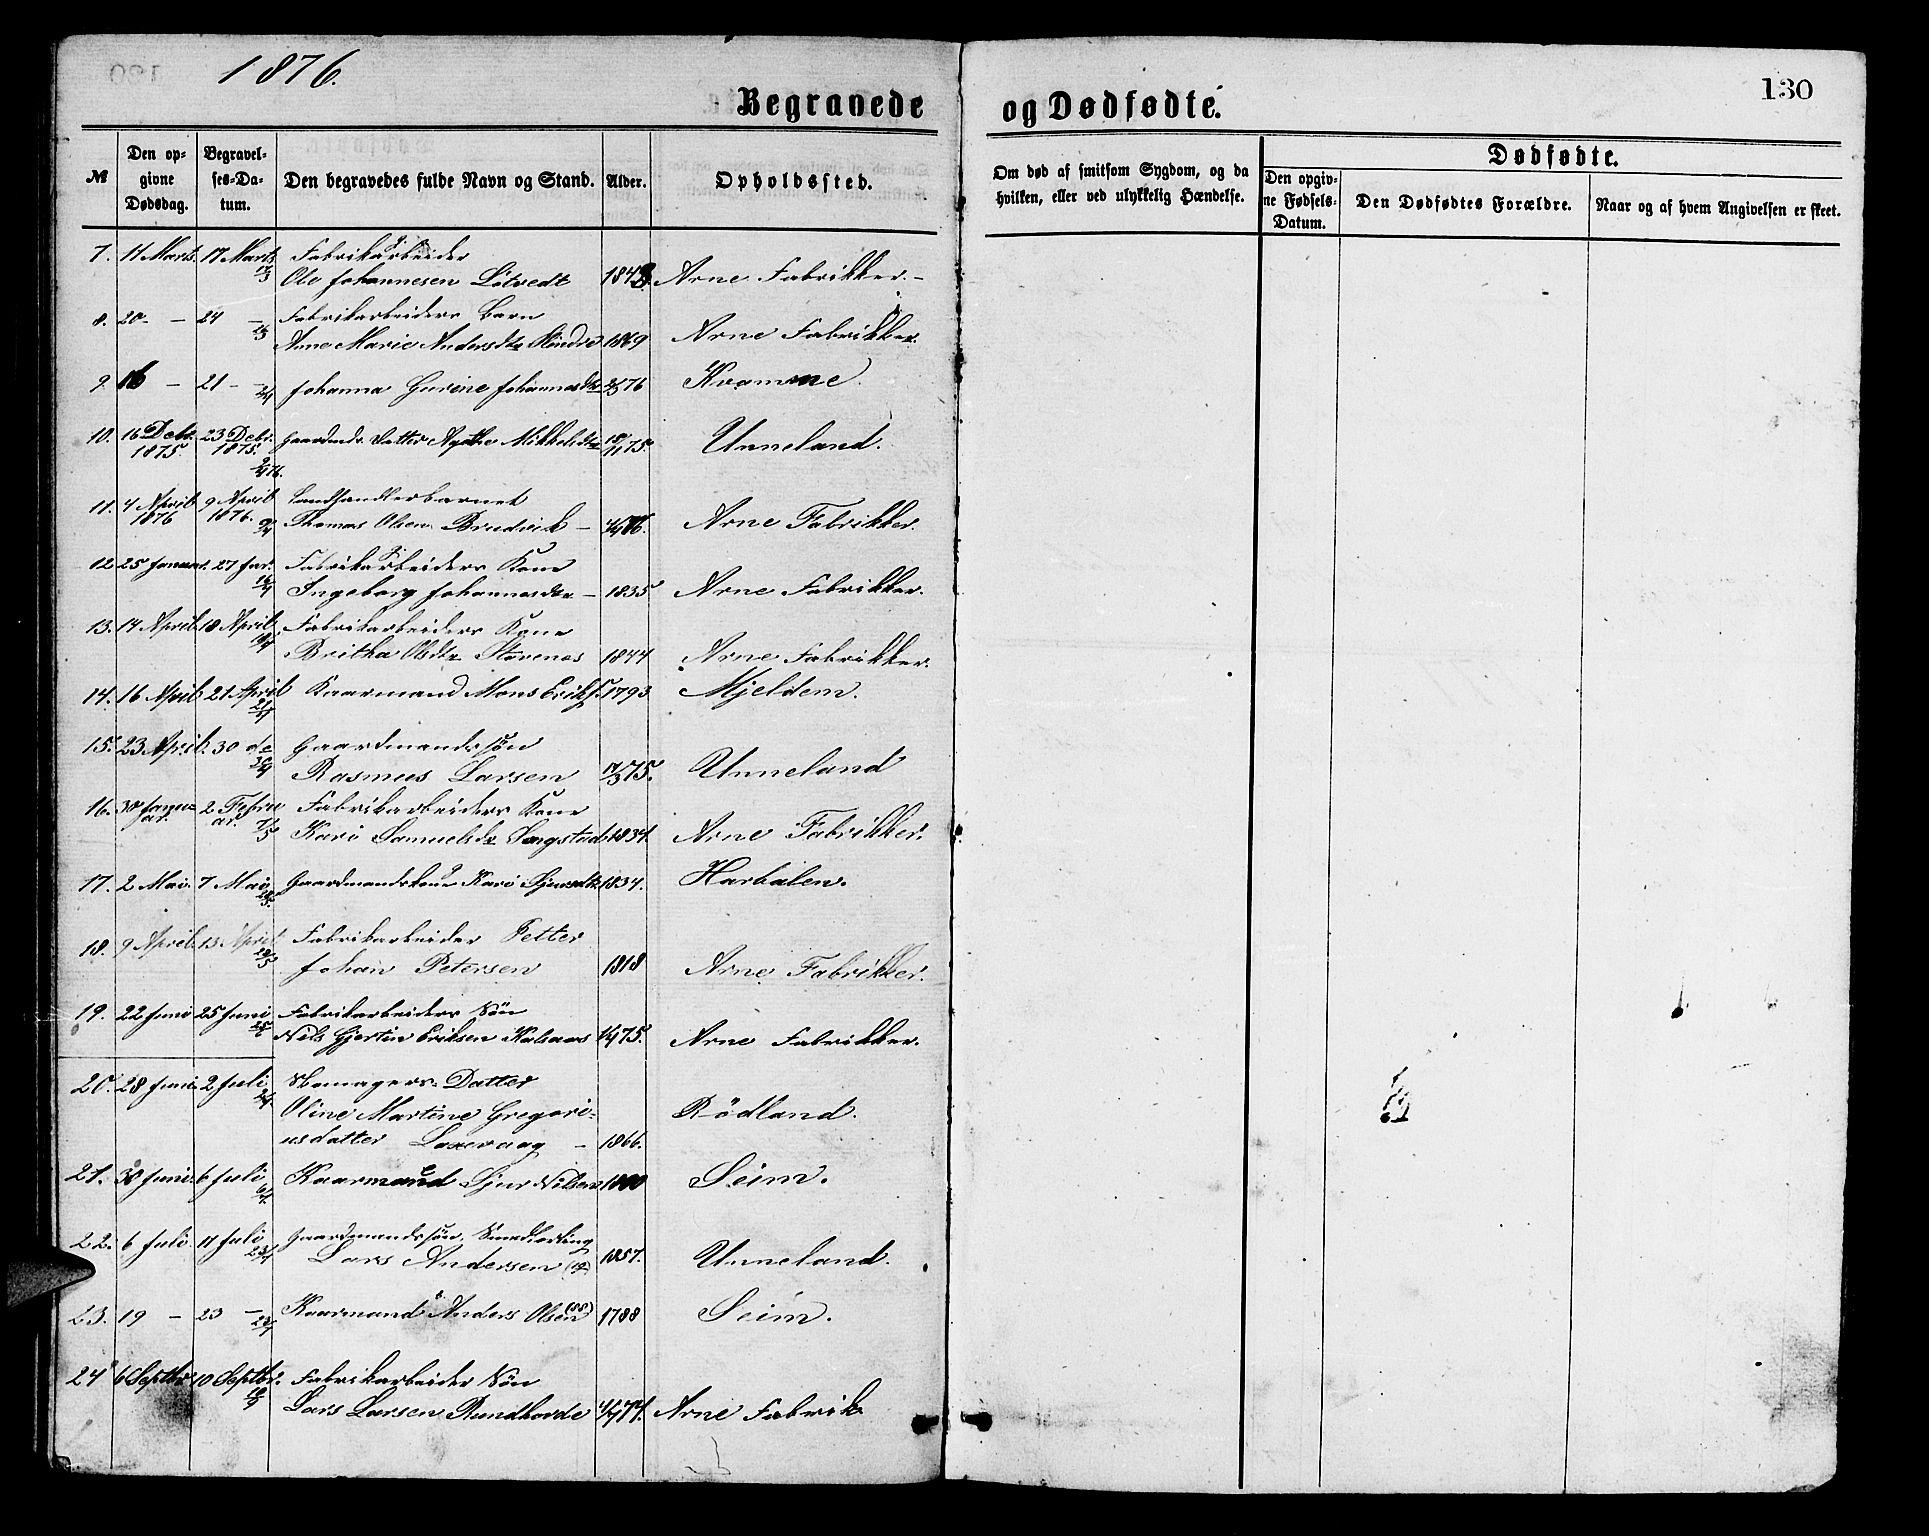 1876.
130
Begravede
og Dødfødte.
№
Den op-
givne
Dødsdag.
Begravel-
ses-Da-
tum.
Den begravedes fulde Navn og Stand.
Alder.
Opholdssted.
Om død af smitsom Sygdom, og da
hvilken, eller ved ulykkelig Hændelse.
Dødfødte.
Den opgiv-
ne Fødsels-
Datum.
Den Dødfødtes Forældre.
Naar og af hvem Angivelsen er skeet.
7. 11 Marts. 17 Marts Fabrikarbeider
Ole Johannesen Lötvedt Arne Fabrikker.-
8. 20 - 24 - Fabrikarbeiders Barn
Anne Marie Andersdtr 1869 Arne Fabrikker.
9. 16 - 21 - Johanna Gurine Johannesdtr Kvamme.
10. 16 Debr. 23 Debr. Gaardmds Datter Agathe Mikkelsdtr Unneland.
1875. 1875.
11. 4 April 9 April Landhandlerbarnet
1876 1876. Thomas Olsen Brudvik - Arne Fabrikker.
12 25 Januar. 27 Jar. Fabrikarbeiders Kone
Ingeborg Johannesdtr - 1835 Arne Fabrikker.
13. 14 April. 18 April Fabrikarbeiders Kone
Britha Olsdtr Stavenes 1844 Arne Fabrikker.
14. 16 April. 21 April Kaarmand Mons Eriks. 1793 Mjeldem.
15. 23 April. 30 de Gaardmandssön
Rasmus Larsen 17/3 75. Unneland
16. 30 Janu- 2 Febru Fabrikarbeiders Kone
ar. ar. 7/5 Kari Samuelsdr 1834. Arne Fabrikker.
17. 2 Mai. 7 Mai Gaardmandskone Kari Sjursdtr 1834. Haukalen.
18. 9 April. 13 April Fabrikarbeider Petter
Johan Petersen 1818 Arne Fabrikker.
19. 22 Juni 25 Juni Fabrikarbeiders Sön
Nils Gjertin Eriksen Kalsaas 75. Arne Fabrikker.
20. 28 Juni. 2 Juli Skomagers Datter
Oline Martine Gregori- Rödland.
usdatter Laxevaag - 1866.
21. 30 Juni. 6 Juli Kaarmand Sjur Nilsen 1800 Seim.
22. 6 Juli. 11 Juli Gaardmandssön, Smedlærling
Lars Andersen (19) 1857. Unneland.
23. 19 - 23 - Kaarmand Anders Olsen (88) 1788 Seim.
24 6 Septbr. 10 Septbr. Fabrikarbeider Sön
Lars Larsen Rundhovde 74. Arne Fabrik